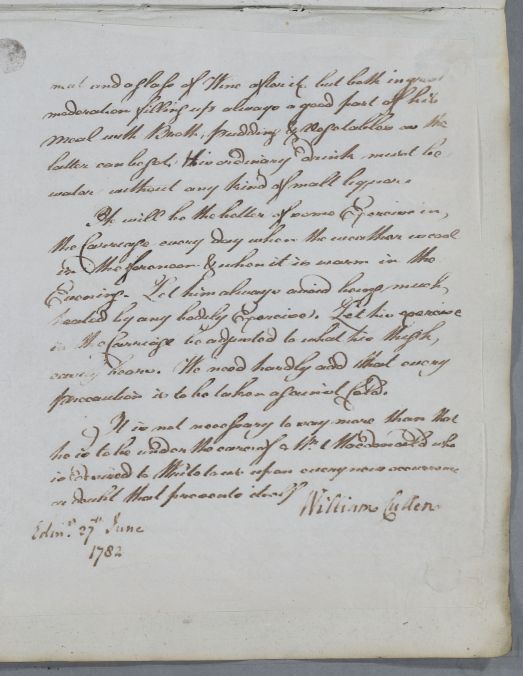 meat and a glass of Wine after it, but both in great
moderation filling up always a good part of his
meal with Broth, pudding & Vegetables as the
latter can be got. His ordinary drink must be
water without any kind of small liquor.
He will be the better of some Exercise in
the Carriage every day when the weather is cool
in the forenoon & when it is warm in the
Evening. Let him always avoid being much
heated by any bodily Exercise. Let his exercise
in the Carriage be adjusted to what he
easily bears. We need hardly add that every
precaution is to be taken against Cold.
It is not necessary to say more than that
he is to be under the care of Mr. Macdonald who
is desired to write to us upon every new occurrence
or doubt that presents itself
William Cullen
Edinr. 27th June
1782